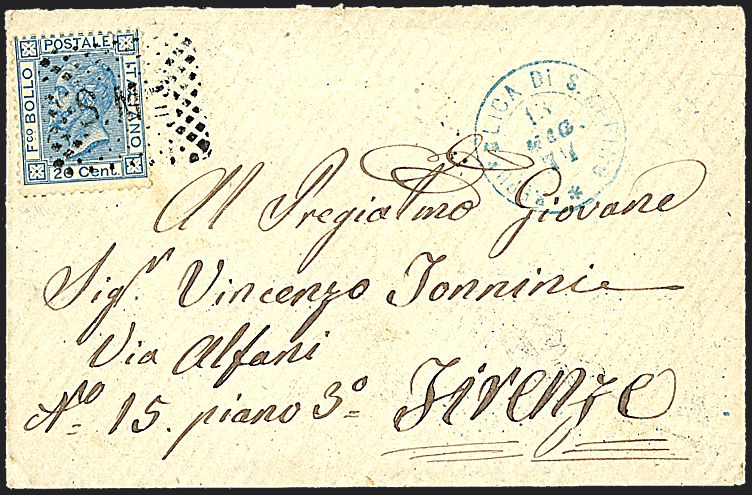 POSTALE
Fco BOLLO
ITALIANO
20 Cent.
REPUBBLICA DI S. MARINO
13
MAG
71
Al Pregiatmo Giovane
Sigr. Vincenzo Tonnini
Via Alfani
No. 15. piano 3o Firenze